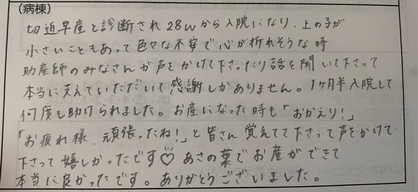 (病棟)
切迫早産と診断され28wから入院になり、上の子が
小さいこともあって色々な不安で心が折れそうな時
助産師のみなさんが声をかけて下さったり話を聞いて下さって
本当に支えていただいて感謝しかありません。1ヶ月半入院して
何度も助けられました。お産になった時も「おかえり!」
「お疲れ様、頑張ったね!」と皆さん覚えてて下さって声をかけて
下さって嬉しかったです♡ あさの葉でお産ができて
本当に良かったです。ありがとうございました。